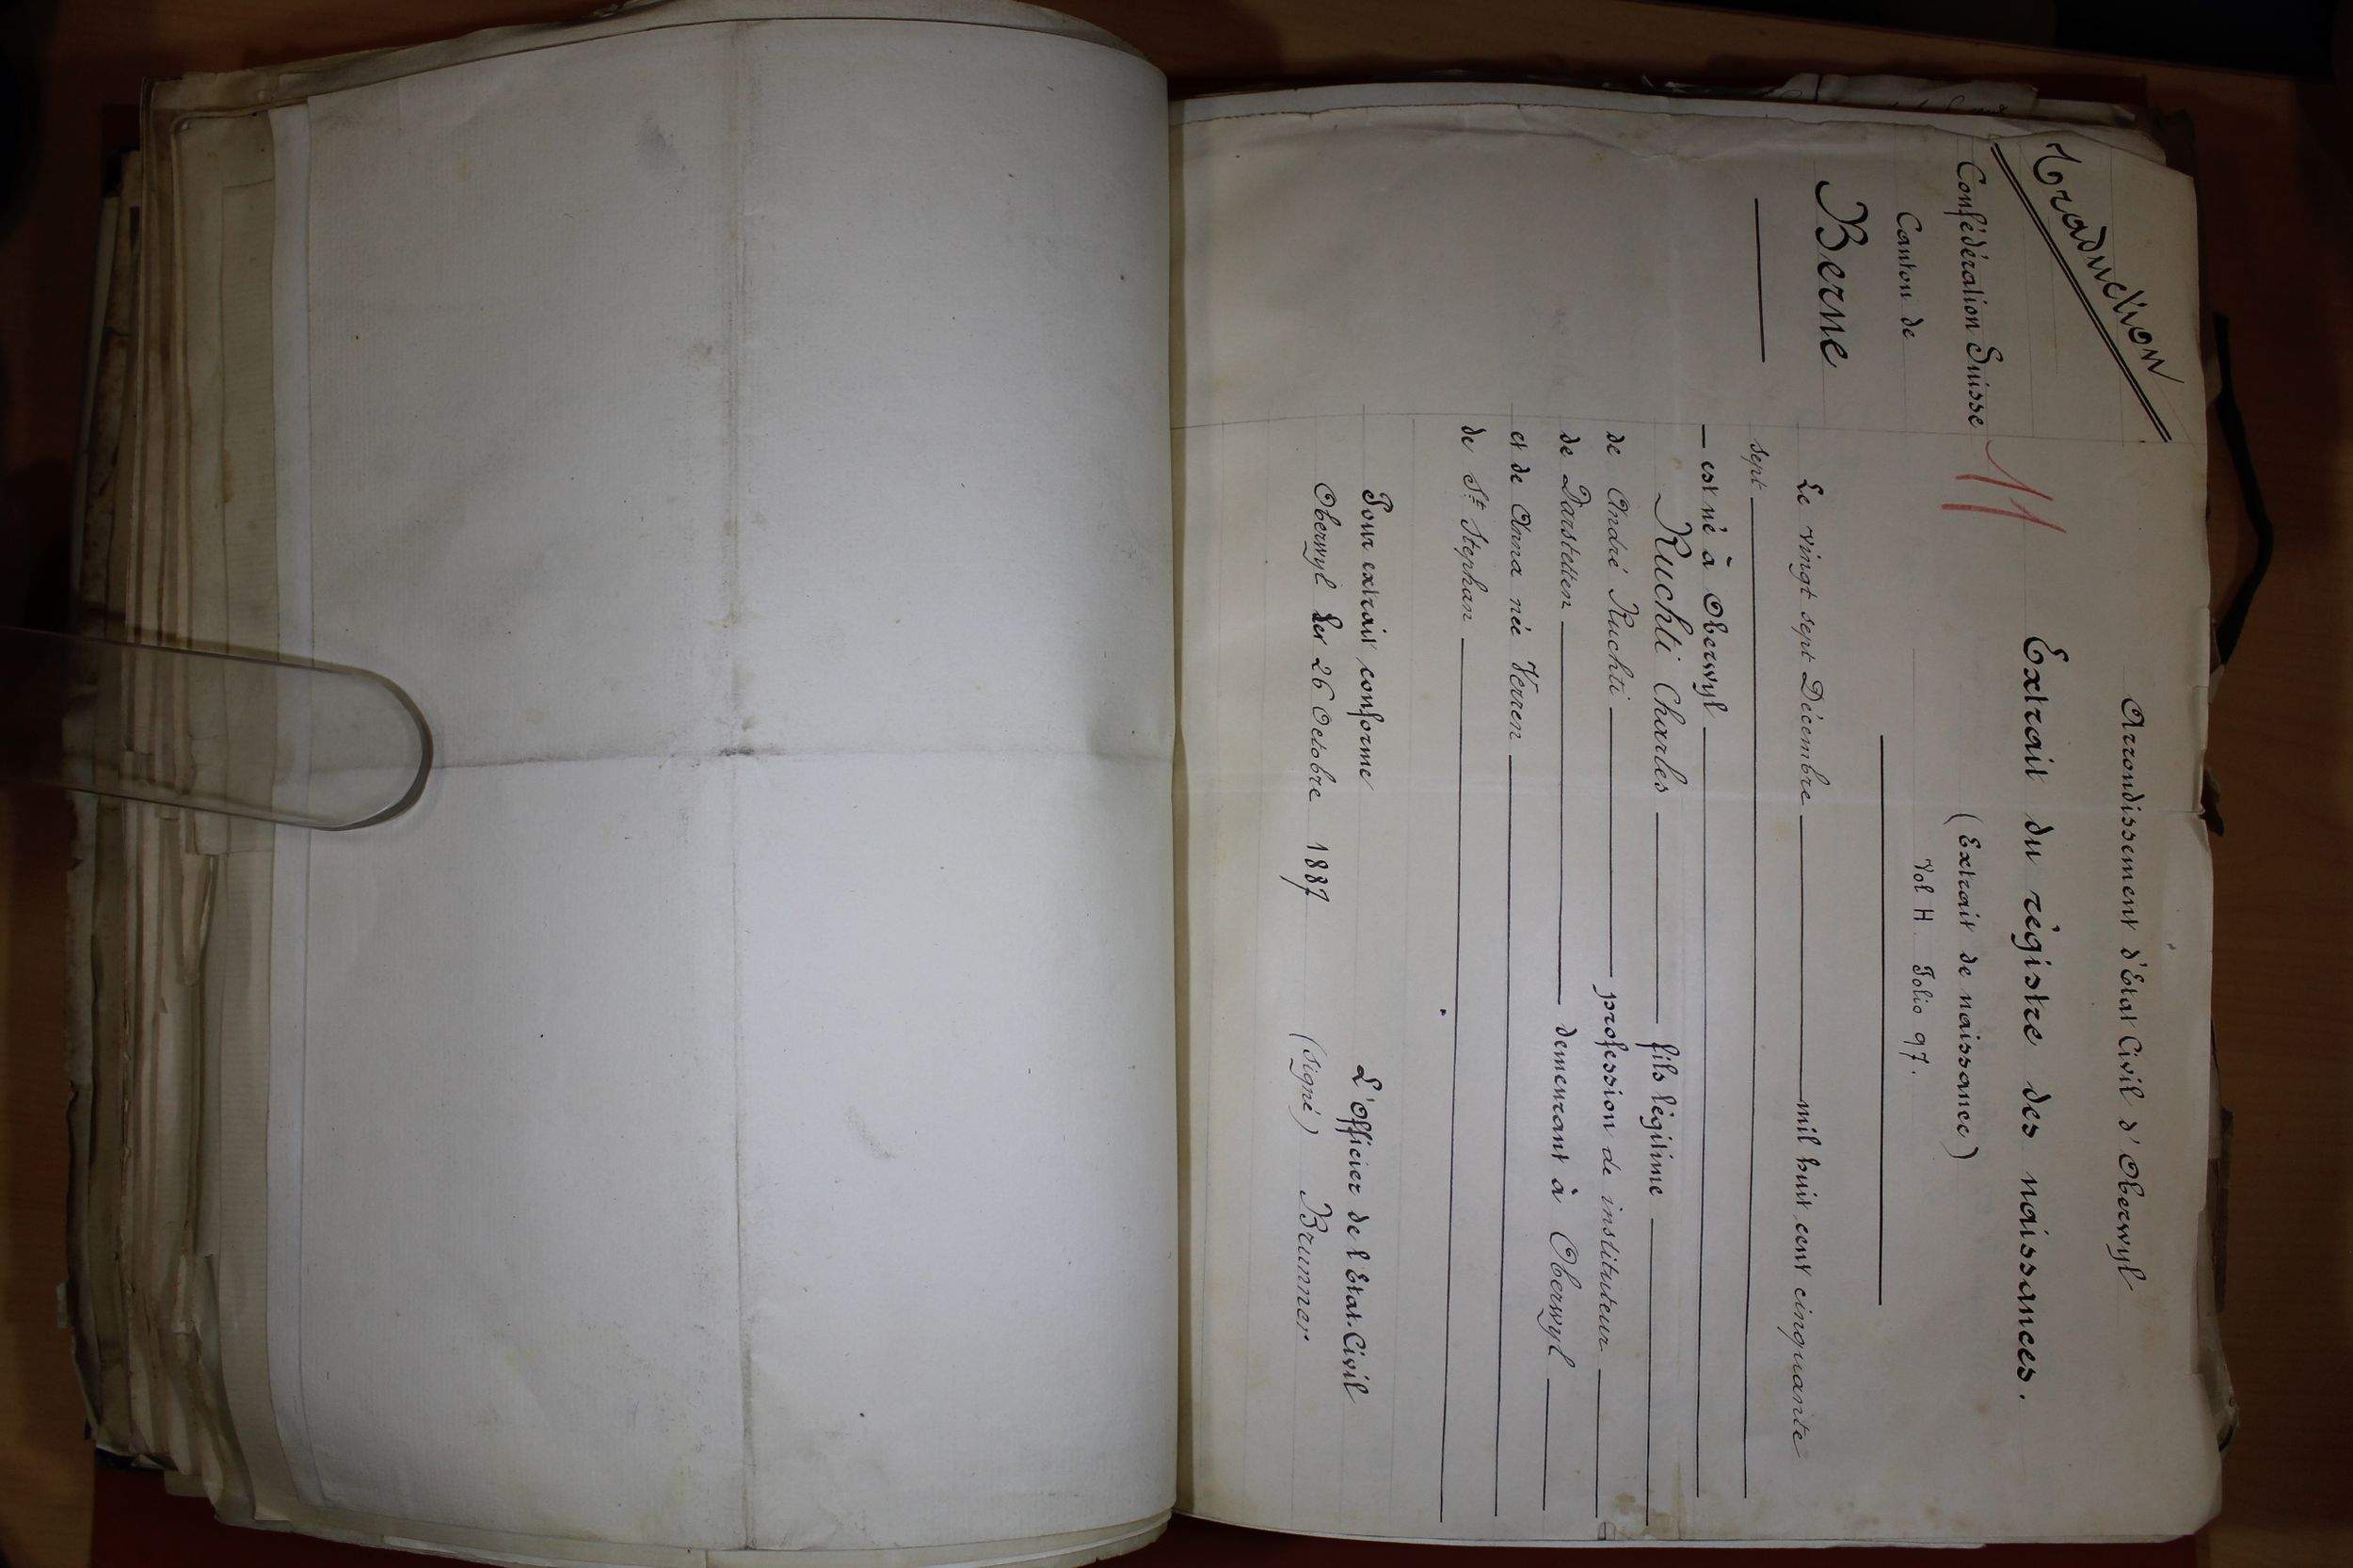 Traduction
Arrondissement d'Etat Civil d'Oberwyl
Extrait du régistre des naissances.
Confédération Suisse
11
(Extrait de naissance)
Canton de
Vol H. Folio 97.
Berne
Le vingt sept Décembre mil huit cent cinquante
sept
est né à Oberwyl
Kuchti Charles fils légitime
de André Kuchti profession de instituteur
de Darstetten demeurant à Oberwyl
et de Anna née Verren
de St Stephan
Pour extrait conforme
L'Officier de l'Etat. Civil
Oberwyl Ler 26 Octobre 1887
(signé) Brunner